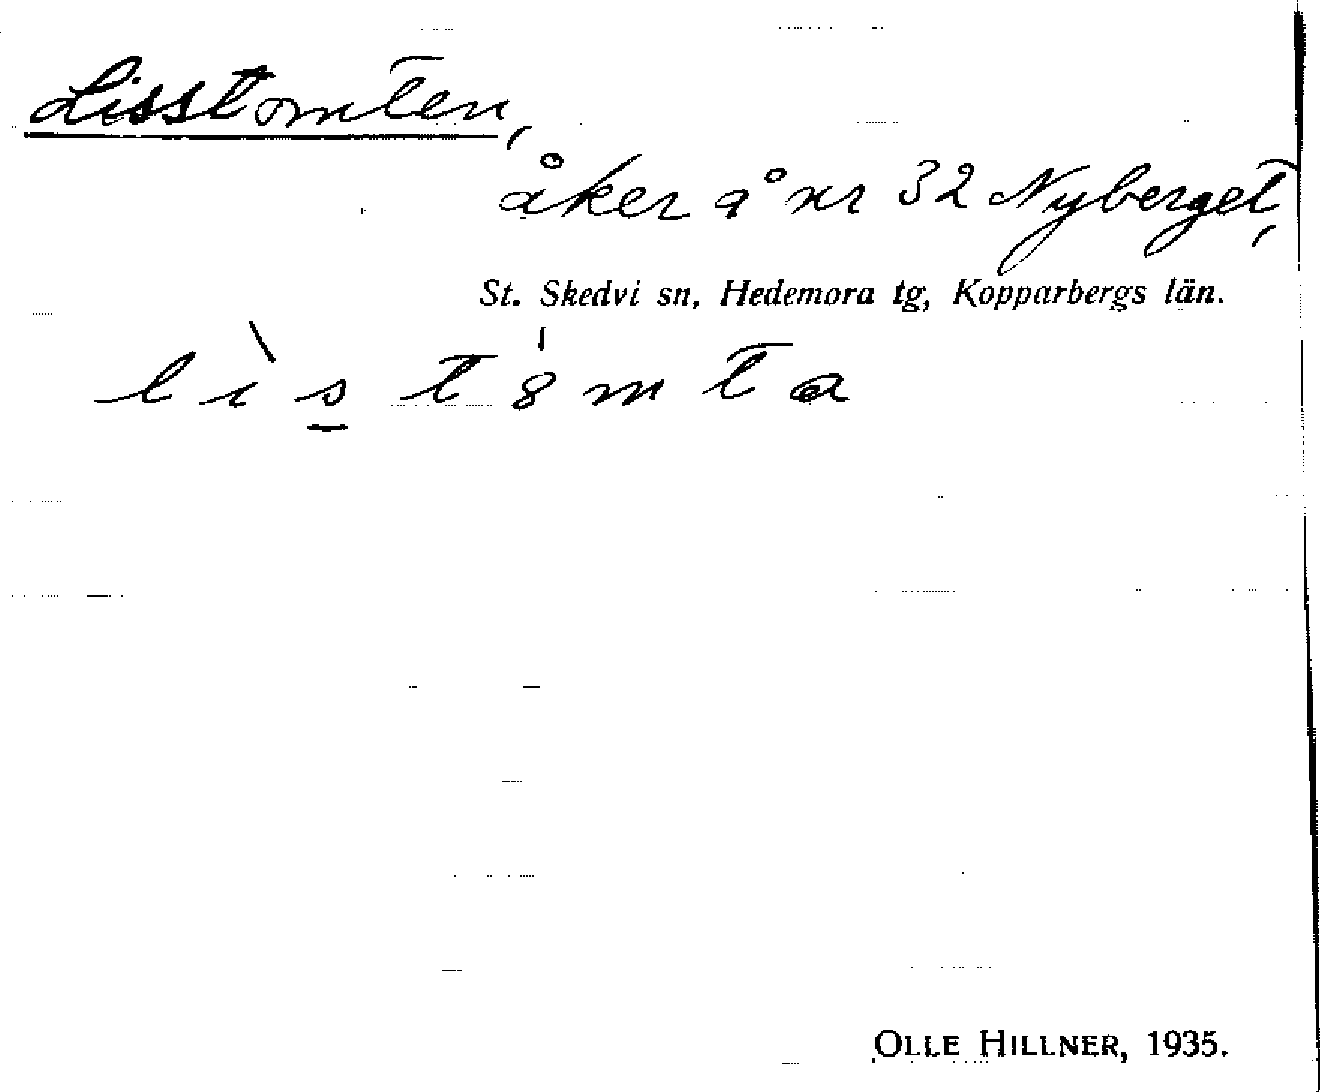 Lisstomten,
åker å nr 32 Nyberget,
St. Skedvi sn, Hedemora tg, Kopparbergs län.
lìst8mta
OLLE HILLNER, 1935.